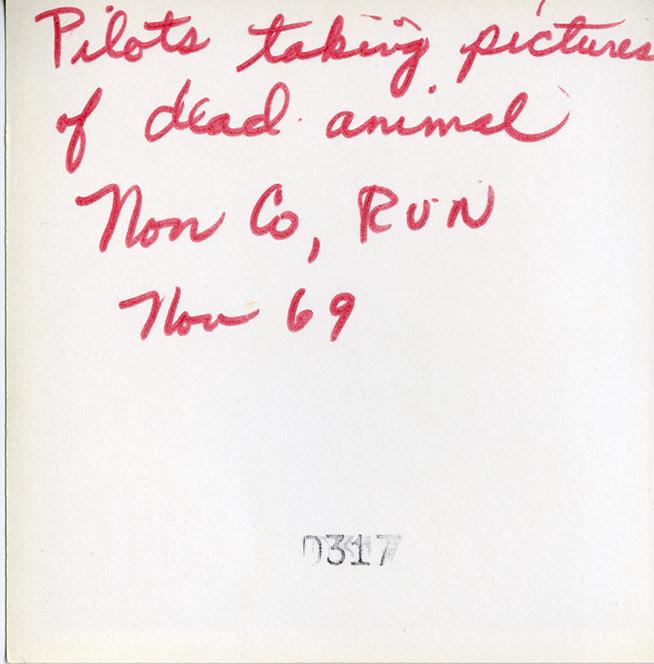 Pilots taking pictures
of dead animal
Non Co, RUN
Nov 69
0317